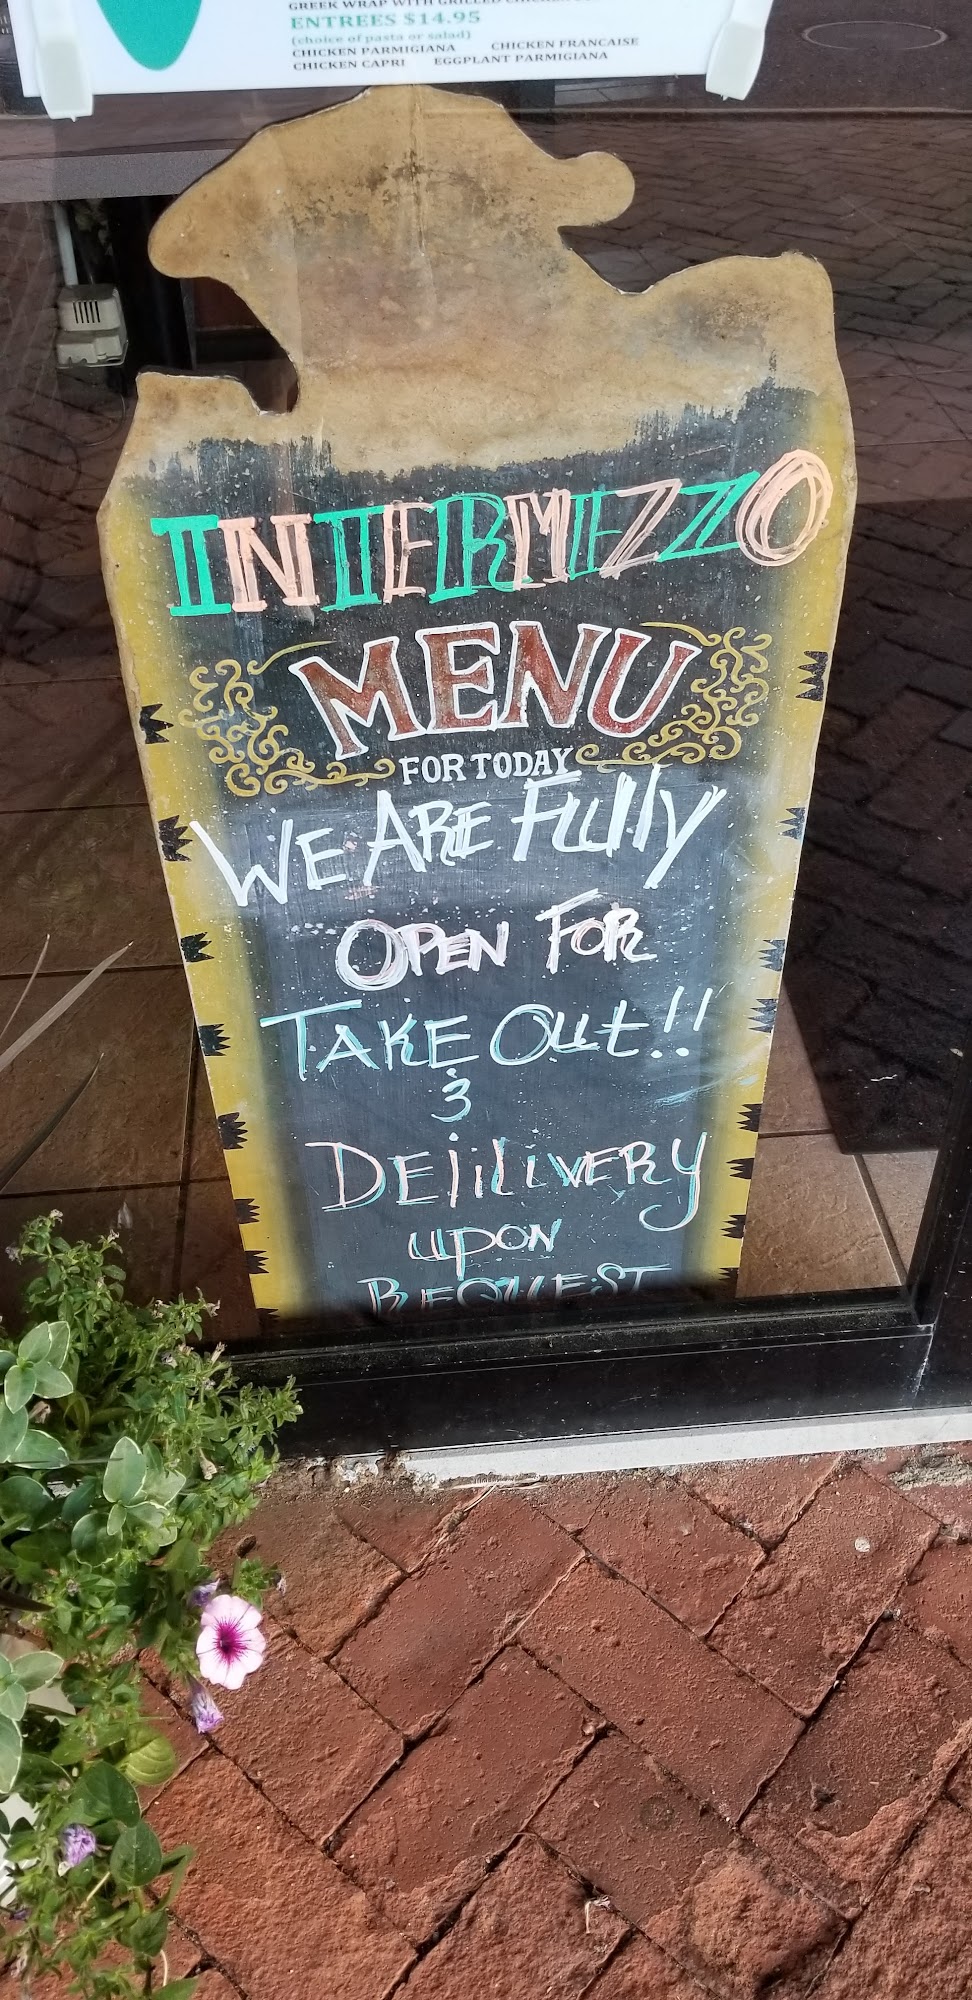 GREEK WRAP WITH GRILLED CHICKEN
ENTREES $14.95
(choice of pasta or salad)
CHICKEN PARMIGIANA CHICKEN FRANCAISE
CHICKEN CAPRI EGGPLANT PARMIGIANA
INTERMEZZO
MENU
FOR TODAY
WE ARE Fully
OPEN FOR
TAKE Out!!
&
DElilivERY
upON
REQUEST